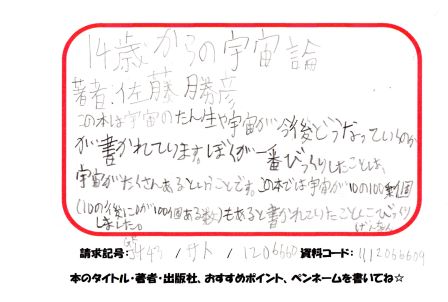 14歳からの宇宙論
著者.佐藤勝彦
この本は宇宙のたん生や宇宙が今後どうなっていくのか
が書かれています。ぼくが一番びっくりしたことは、
宇宙がたくさんあるということです。この本では宇宙が10の100乗個
(10の後に0が100個ある数)もあると書かれていたことにびっくり
しました。
請求記号: 443 / サト / 1206660 資料コード:
本のタイトル・著者・出版社、おすすめポイント、ペンネームを書いてね☆